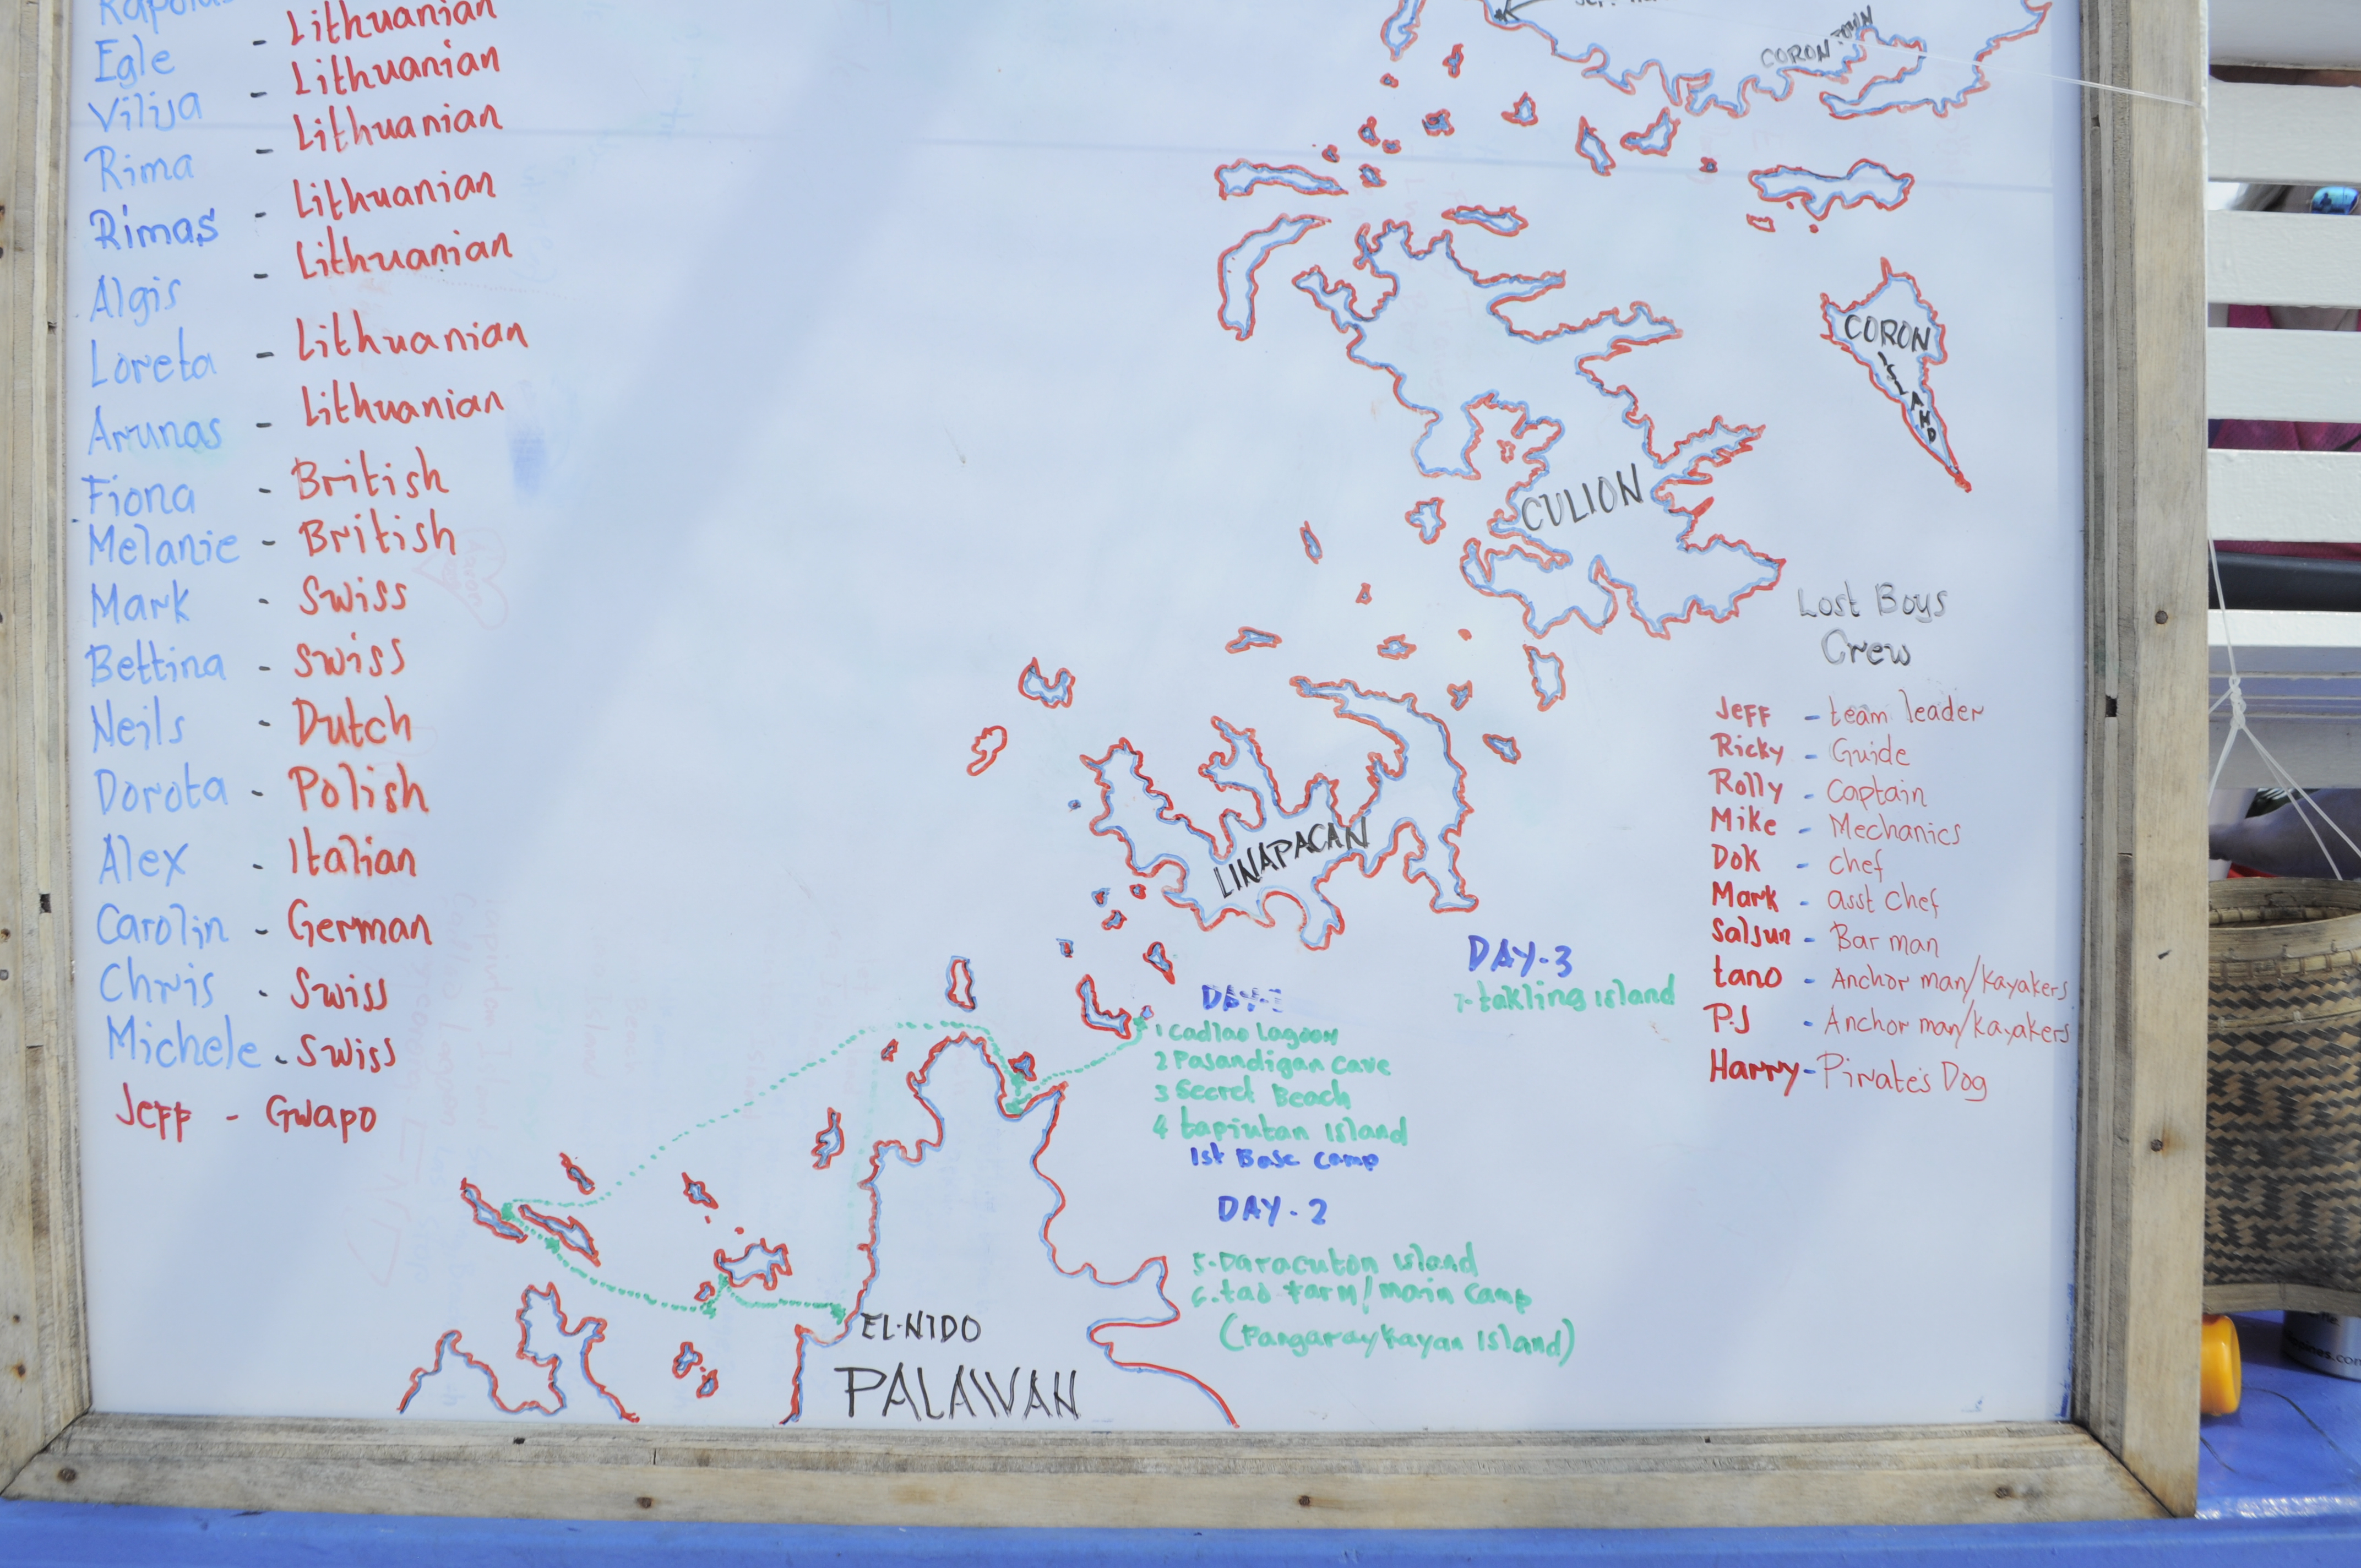 Egle - Lithuanian
Vilija - Lithuanian
Rima - Lithuanian
Rimas - Lithuanian
Algis - Lithuanian
Loreta - Lithuanian
Arunas - Lithuanian
Fiona - British
Melanie - British
Mark - Swiss
Bettina - Swiss
Neils - Dutch
Dorota - Polish
Alex - Italian
Carolin - German
Chris - Swiss
Michele - Swiss
Jeff - Gwapo
CORON TOWN
CORON
ISLAND
CULION
LINAPACAN
Lost Boys
Crew
Jeff - team leader
Ricky - Guide
Rolly - Captain
Mike - Mechanics
Dok - chef
Mark - asst chef
Salsun - Bar man
tano - Anchor man/kayakers
P.J - Anchor man/kayakers
Harry - Pirate's Dog
DAY-3
7- takling Island
DAY-1
1 Cadlao Lagoon
2 Pasandigan Cave
3 Secret Beach
4 tapiutan Island
1st Base Camp
DAY-2
5. Daracuton Island
6. tao farm/main Camp
(Pangaraykayan Island)
EL-NIDO
PALAWAN